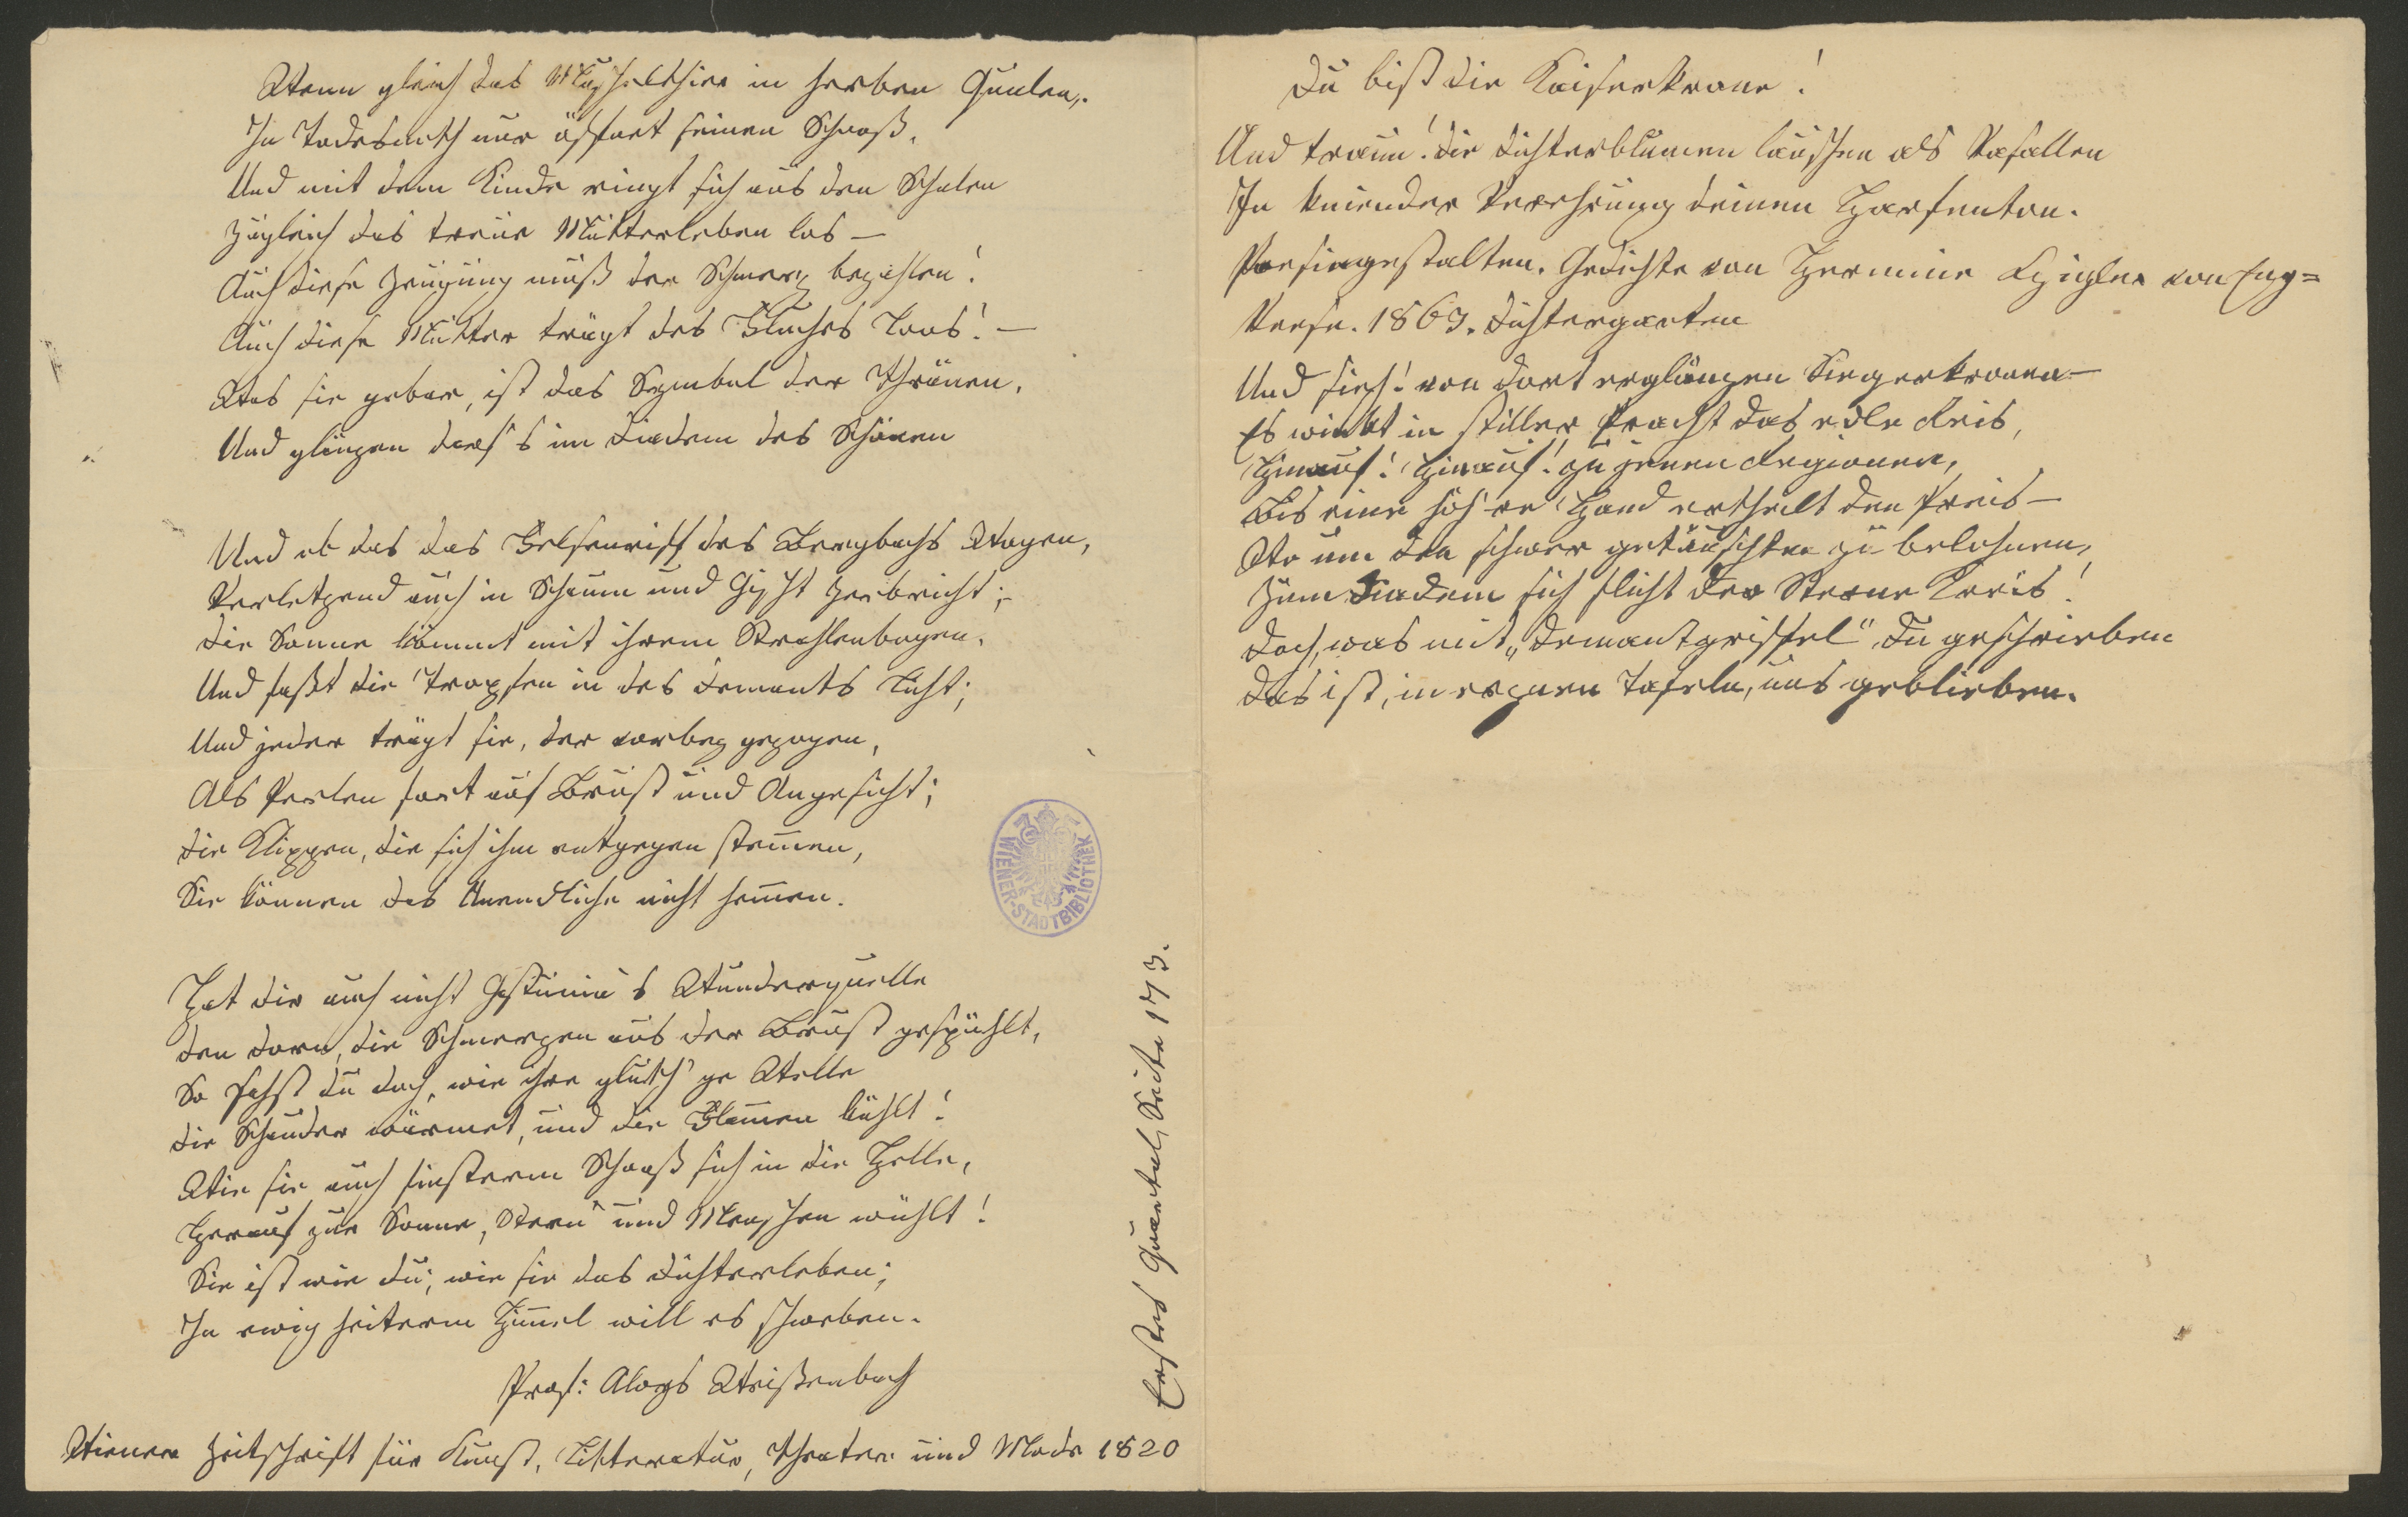 Wenn gleich das Muschelthier in herben Qualen,
In Todesnoth nur öffnet seinen Schooß,
Und mit dem Kinde ringt sich aus den Schalen
Zugleich das treue Mutterleben los —
Auch diese Zeugung muß der Schmerz bezahlen!
Auch diese Mutter trägt des Fluches Loos! —
Was sie gebar, ist das Symbol der Thränen,
Und glänzen darf's im Diadem des Schönen
Und ob das das Felsenriff des Bergbachs Wogen,
Verletzend auch in Schaum und Gischt zerbricht;
die Sonne kömmt mit ihrem Strahlenbogen,
Und faßt die Tropfen in des Demants Licht;
Und jeder trägt sie, der vorbey gezogen,
Als Perlen fort auf Brust und Angesicht;
die Klippen, die sich ihm entgegen stem̄en,
Sie können das Unendliche nicht hem̄en.
Hat dir auch nicht Gastuna's Wunderquelle
den Dorn, die Schmerzen aus der Brust gespühlt,
So sahst du doch, wie ihre gluth'ge Welle
die Schauder wärmet, und die Flam̄en kühlt!
Wie sie auch finsterm Schooß sich in die Helle,
Herauf zur Sonne, Stern' und Menschen wühlt!
Sie ist wie du; wie sie das Dichterleben;
In ewig heiterm Him̄el will es schweben.
Prof: Aloys Weißenbach
Wiener Zeitschrift für Kunst, Litteratur, Theater und Mode 1820
Erstes Quartal, Seite 173.
Du bist die Kaiserkrone!
Und traun! die Dichterblumen lauschen als Vasallen
In kniender Verehrung deinen Harfenton.
Poesiegestalten. Gedichte von Hermine Czigler von Eny=
Vecse. 1863. Dichtergarten
Und sieh! von dort erglänzen Siegerkronen —
Es winkt in stiller Pracht das edle Reis,
Hinauf! Hinauf! zu jenen Regionen,
Bis eine höh're Hand ertheilt den Preis —
Wo um den schwer getäuschten zu belohnen,
Zum Diadem sich flicht der Sterne Kreis!
doch, was mit „Demantgriffel“ Du geschrieben
das ist, in ergnen Tafeln, uns geblieben.
WIENER-STADTBIBLIOTHEK